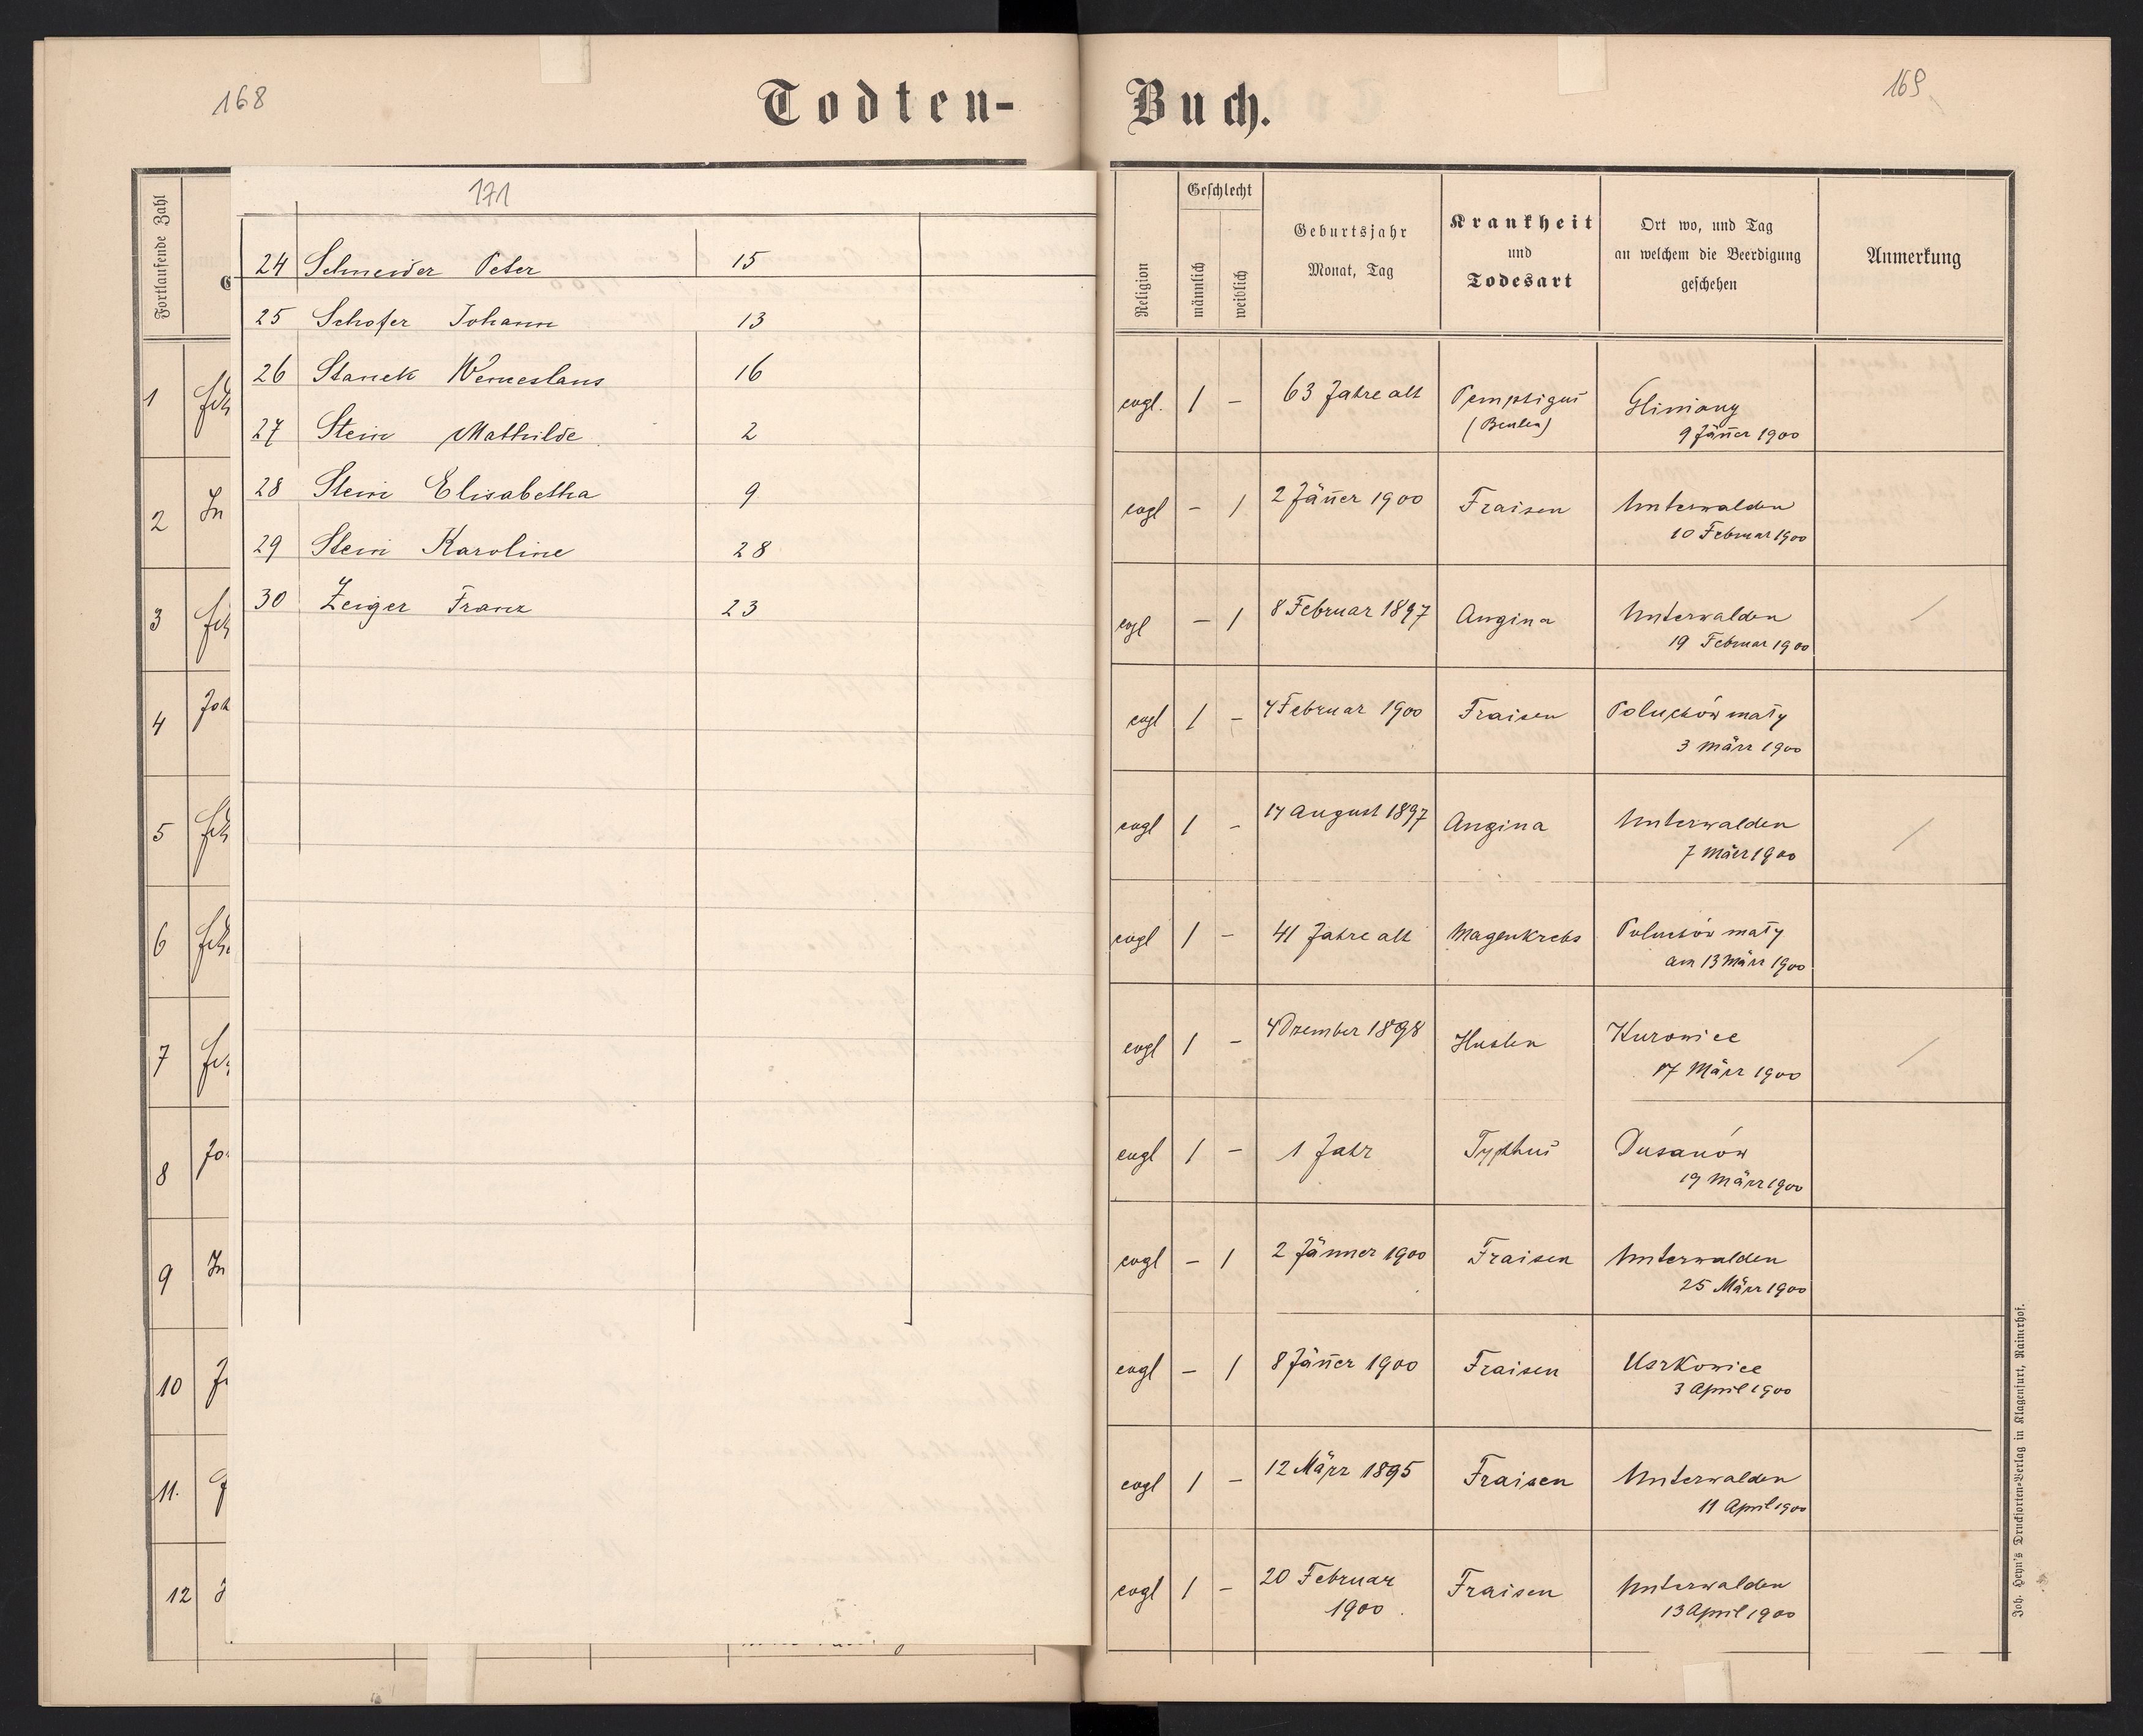 168
Todten-
Buch.
169
171
Fortlaufende Zahl
24 Schneider Peter 15
25 Schofer Johann 13
26 Stanek Wenceslaus 16
27 Stein Mathilde 2
28 Stein Elisabetha 9
29 Stein Karoline 28
30 Zeiger Franz 23
1
2 In
3
4 Joh
5
6
7
8 Jo
9 In
10
11.
12
Religion
Geschlecht
männlich
weiblich
Geburtsjahr
Monat, Tag
Krankheit
und
Todesart
Ort wo, und Tag
an welchem die Beerdigung
geschehen
Anmerkung
evgl. 1 – 63 Jahre alt Pemphigus Gliniany
(Beulen) 9 Jäner 1900
evgl – 1 2 Jäner 1900 Fraisen Unterwalden
10 Februar 1900
evgl – 1 8 Februar 1897 Angina Unterwalden
19 Februar 1900
evgl 1 – 4 Februar 1900 Fraisen Poluchów mały
3 März 1900
evgl 1 – 14 August 1897 Angina Unterwalden
7 März 1900
evgl 1 – 41 Jahre alt Magenkrebs Poluchów mały
am 13 März 1900
evgl 1 – 4 Dezember 1898 Husten Kurowice
17 März 1900
evgl 1 – 1 Jahr Typhus Dusanów
19 März 1900
evgl – 1 2 Jänner 1900 Fraisen Unterwalden
25 März 1900
evgl – 1 8 Jäner 1900 Fraisen Uszkowice
3 April 1900
evgl 1 – 12 März 1895 Fraisen Unterwalden
11 April 1900
evgl 1 – 20 Februar Fraisen Unterwalden
1900. 13 April 1900
Joh. Heyn's Drucksorten-Verlag in Klagenfurt, Rainerhof.